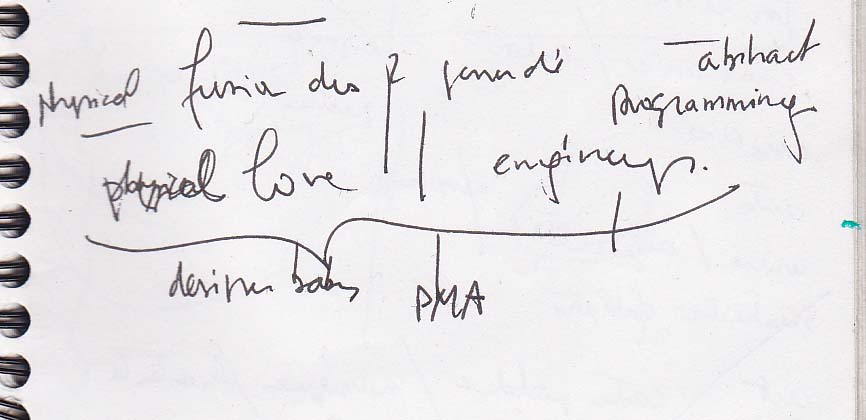 physical fusion des genetic abstract
programming
physical love engineering.
designer babies PMA